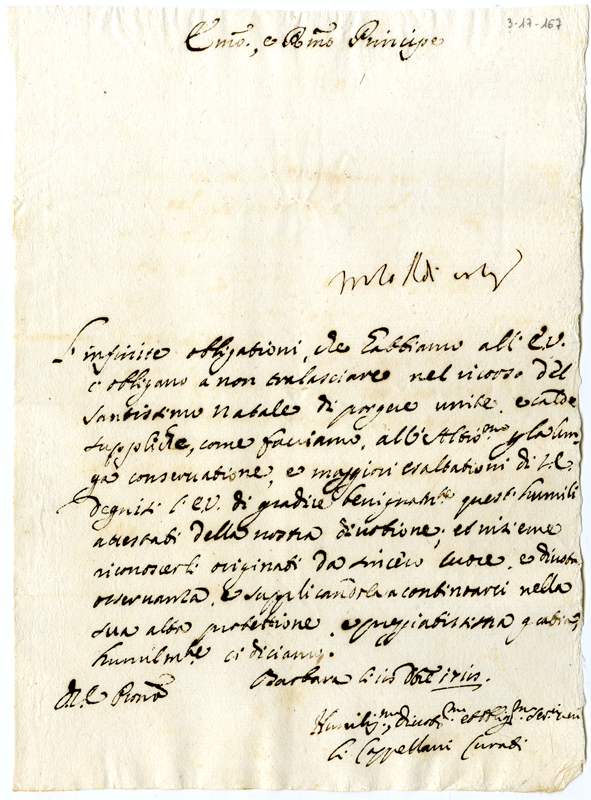 3-17-167
Em̃o., e Rm̃o Principe
L'infinite obligationi, che habbiamo all'E.V.
c'obligano a non tralasciare nel ricorso del
Santissimo Natale di porgere unite, e calde
suppliche, come facciamo, all'Altiss.mo p la lun-
ga conservatione, e maggiori esaltationi di
Degnisi l'E.V. di gradire benignam.te questi humili
attestati della nostra divotione, et insieme
riconoscerli originati da sincero cuore, e divota
osservanza, e supplicandola a continuarci nella
sua alta protettione, e pregiatissima gratia,
humilm.te ci diciamo.
Barbara li
Humiliss.mi, divotiss.mi et oblig.mi Servitori
Li Cappellani Curati